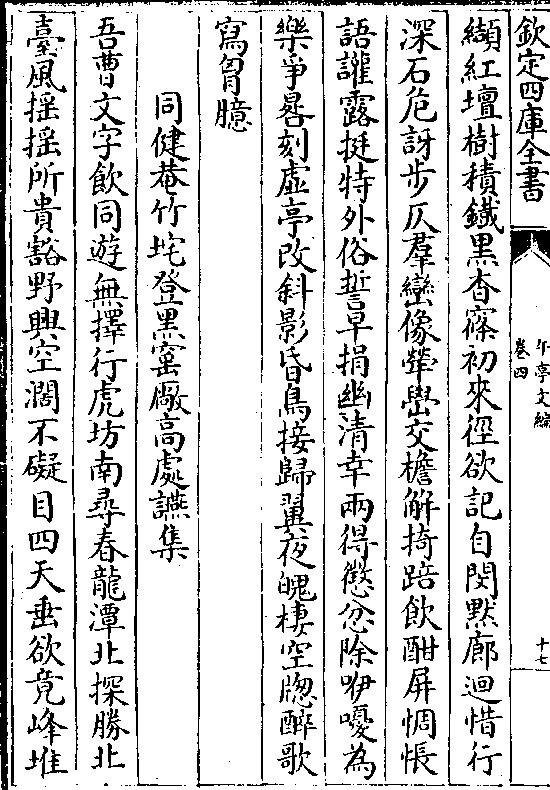 欽定四庫全書
午亭文編
卷四
十七
纈紅壇樹積鐵黒杳窱初來徑欲記自閔黙廊迴惜行
深石危訝步仄羣巒像犖嶨交檐解掎踣飲酣屏惆悵
語讙露挺特外俗誓早捐幽清幸兩得懲忿除咿嚘為
樂爭晷刻虚亭改斜影昏鳥接歸翼夜魄棲空牕醉歌
寫胷臆
同健菴竹垞登黒窰廠高處讌集
吾曹文字飲同遊無擇行虎坊南尋春龍潭北探勝北
臺風揺揺所貴豁野興空濶不礙目四天垂欲竟峰堆